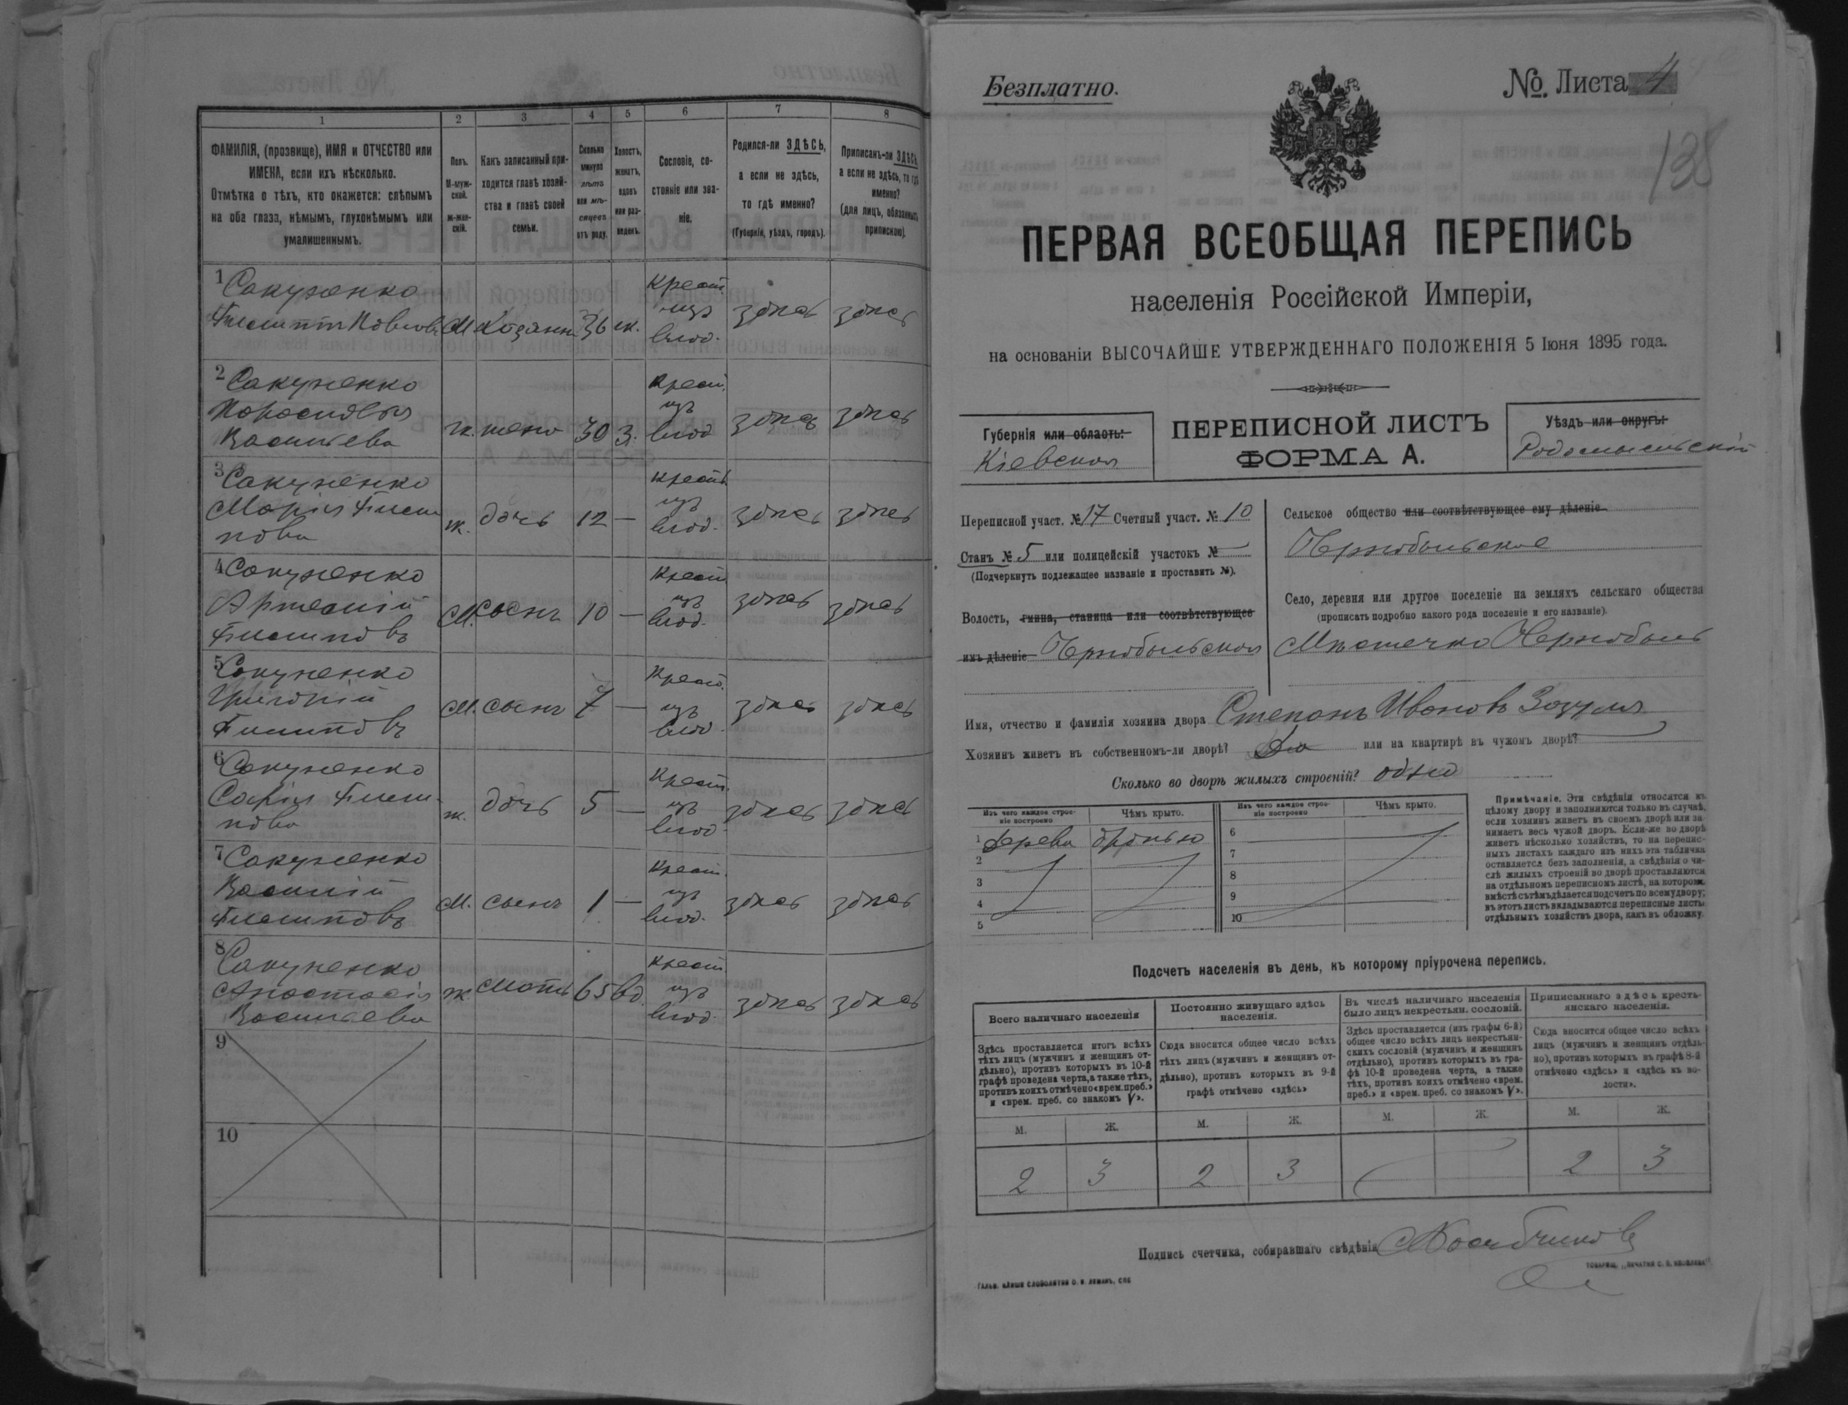 1 2 3 4 5 6 7 8
ФАМИЛІЯ, (прозвище), ИМЯ и ОТЧЕСТВО или
ИМЕНА, если ихъ нѣсколько.
Отмѣтка о тѣхъ, кто окажется: слѣпымъ
на оба глаза, нѣмымъ, глухонѣмымъ или
умалишеннымъ.
Полъ.
М-муж-
ской.
ж-жен-
скій.
Какъ записанный при-
ходится главѣ хозяй-
ства и главѣ своей
семьи.
Сколько
минуло
лѣтъ
или мѣ-
сяцевъ
отъ роду.
Холостъ,
женатъ,
вдовъ
или раз-
веденъ.
Сословіе, со-
стояніе или зва-
ніе.
Родился-ли ЗДѢСЬ,
а если не здѣсь,
то гдѣ именно?
(Губернія, уѣздъ, городъ).
Приписанъ-ли ЗДѢСЬ,
а если не здѣсь, то гдѣ
именно?
(для лицъ, обязанныхъ
припискою).
1 Сакуненко
Филиппъ Павловъ М. хозяинъ 36 ж. крест. изъ влад. здѣсь здѣсь
2 Сакуненко
Васильева ж. жена 30 з. крест. изъ влад. здѣсь здѣсь
3 Сакуненко
Марія Филип
пова ж. дочь 12 — крест. изъ влад. здѣсь здѣсь
4 Сакуненко
Артемій
Филиповъ М. сынъ 10 — крест. изъ влад. здѣсь здѣсь
5 Сакуненко
Григорій
Филиповъ М. сынъ 7 — крест. изъ влад. здѣсь здѣсь
6 Сакуненко
Софія Филип
пова ж. дочь 5 — крест. изъ влад. здѣсь здѣсь
7 Сакуненко
Василій
Филиповъ М. сынъ 1 — крест. изъ влад. здѣсь здѣсь
8 Сакуненко
Анастасія
Васильева ж. мать 65 вд. крест. изъ влад. здѣсь здѣсь
9
10
Безплатно.
№ Листа 4
138
ПЕРВАЯ ВСЕОБЩАЯ ПЕРЕПИСЬ
населенія Россійской Имперіи,
на основаніи ВЫСОЧАЙШЕ УТВЕРЖДЕННАГО ПОЛОЖЕНІЯ 5 Іюня 1895 года.
Губернія или область:
Кіевская
ПЕРЕПИСНОЙ ЛИСТЪ
ФОРМА А.
Уѣздъ или округъ:
Радомысльскій
Переписной участ. № 17 Счетный участ. № 10
Станъ № 5 или полицейскій участокъ № —
(Подчеркнуть подлежащее названіе и проставить №).
Волость, гмина, станица или соотвѣтствующее
имъ дѣленіе Чернобыльская
Сельское общество или соотвѣтствующее ему дѣленіе
Чернобыльское
Село, деревня или другое поселеніе на земляхъ сельскаго общества
(прописать подробно какого рода поселеніе и его названіе).
Мѣстечко Чернобыль
Имя, отчество и фамилія хозяина двора Степанъ Ивановъ Зозуля
Хозяинъ живетъ въ собственномъ-ли дворѣ? Да или на квартирѣ въ чужомъ дворѣ?
Сколько во дворѣ жилыхъ строеній? одно
Изъ чего каждое строе-
ніе построено
Чѣмъ крыто.
Изъ чего каждое строе-
ніе построено
Чѣмъ крыто.
1 Дерева дранью
2
3
4
5
6
7
8
9
10
Примѣчаніе. Эти свѣдѣнія относятся къ
цѣлому двору и заполняются только въ случаѣ,
если хозяинъ живетъ въ своемъ дворѣ или за-
нимаетъ весь чужой дворъ. Если-же во дворѣ
живетъ нѣсколько хозяйствъ, то на перепис-
ныхъ листахъ каждаго изъ нихъ эта табличка
оставляется безъ заполненія, а свѣдѣнія о чи-
слѣ жилыхъ строеній во дворѣ проставляются
на отдѣльномъ переписномъ листѣ, на которомъ
вмѣстѣ съ тѣмъ дѣлается подсчетъ по всему двору;
въ этотъ листъ вкладываются переписные листы
отдѣльныхъ хозяйствъ двора, какъ въ обложку.
Подсчетъ населенія въ день, къ которому пріурочена перепись.
Всего наличнаго населенія
Постоянно живущаго здѣсь
населенія.
Въ числѣ наличнаго населенія
было лицъ некрестьян. сословій.
Приписаннаго здѣсь кресть-
янскаго населенія.
Здѣсь проставляется итогъ всѣхъ
тѣхъ лицъ (мужчинъ и женщинъ от-
дѣльно), противъ которыхъ въ 10-й
графѣ проведена черта, а также тѣхъ,
противъ коихъ отмѣчено «врем. преб.»
и «врем. преб. со знакомъ V».
Сюда вносится общее число всѣхъ
тѣхъ лицъ (мужчинъ и женщинъ от-
дѣльно), противъ которыхъ въ 9-й
графѣ отмѣчено «здѣсь»
Здѣсь проставляется (изъ графы 6-й)
общее число всѣхъ лицъ некрестьян-
скихъ сословій (мужчинъ и женщинъ
отдѣльно), противъ которыхъ въ гра-
фѣ 10-й проведена черта, а также
тѣхъ, противъ коихъ отмѣчено «врем.
преб.» и «врем. преб. со знакомъ V».
Сюда вносится общее число всѣхъ
лицъ (мужчинъ и женщинъ отдѣль-
но), противъ которыхъ въ графѣ 8-й
отмѣчено «здѣсь» и «здѣсь въ во-
лости».
М. Ж. М. Ж. М. Ж. М. Ж.
2 3 2 3 2 3
Подпись счетчика, собиравшаго свѣдѣнія